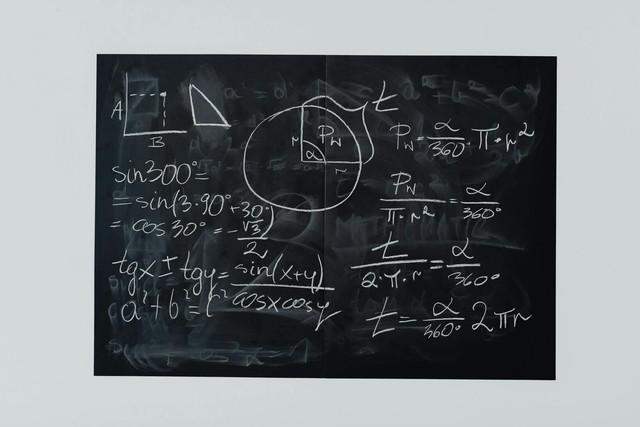 A
B
sin300°=
= sin(3·90°+30°)
= cos30° = -√3/2
tgx ± tgy = sin(x+y)/cosxcosy
a²+b²=c²
t
P_W
r
α
r
P_W = α/360° · π · r²
P_W/π·r² = α/360°
t/2·π·r = α/360°
t = α/360° 2πr